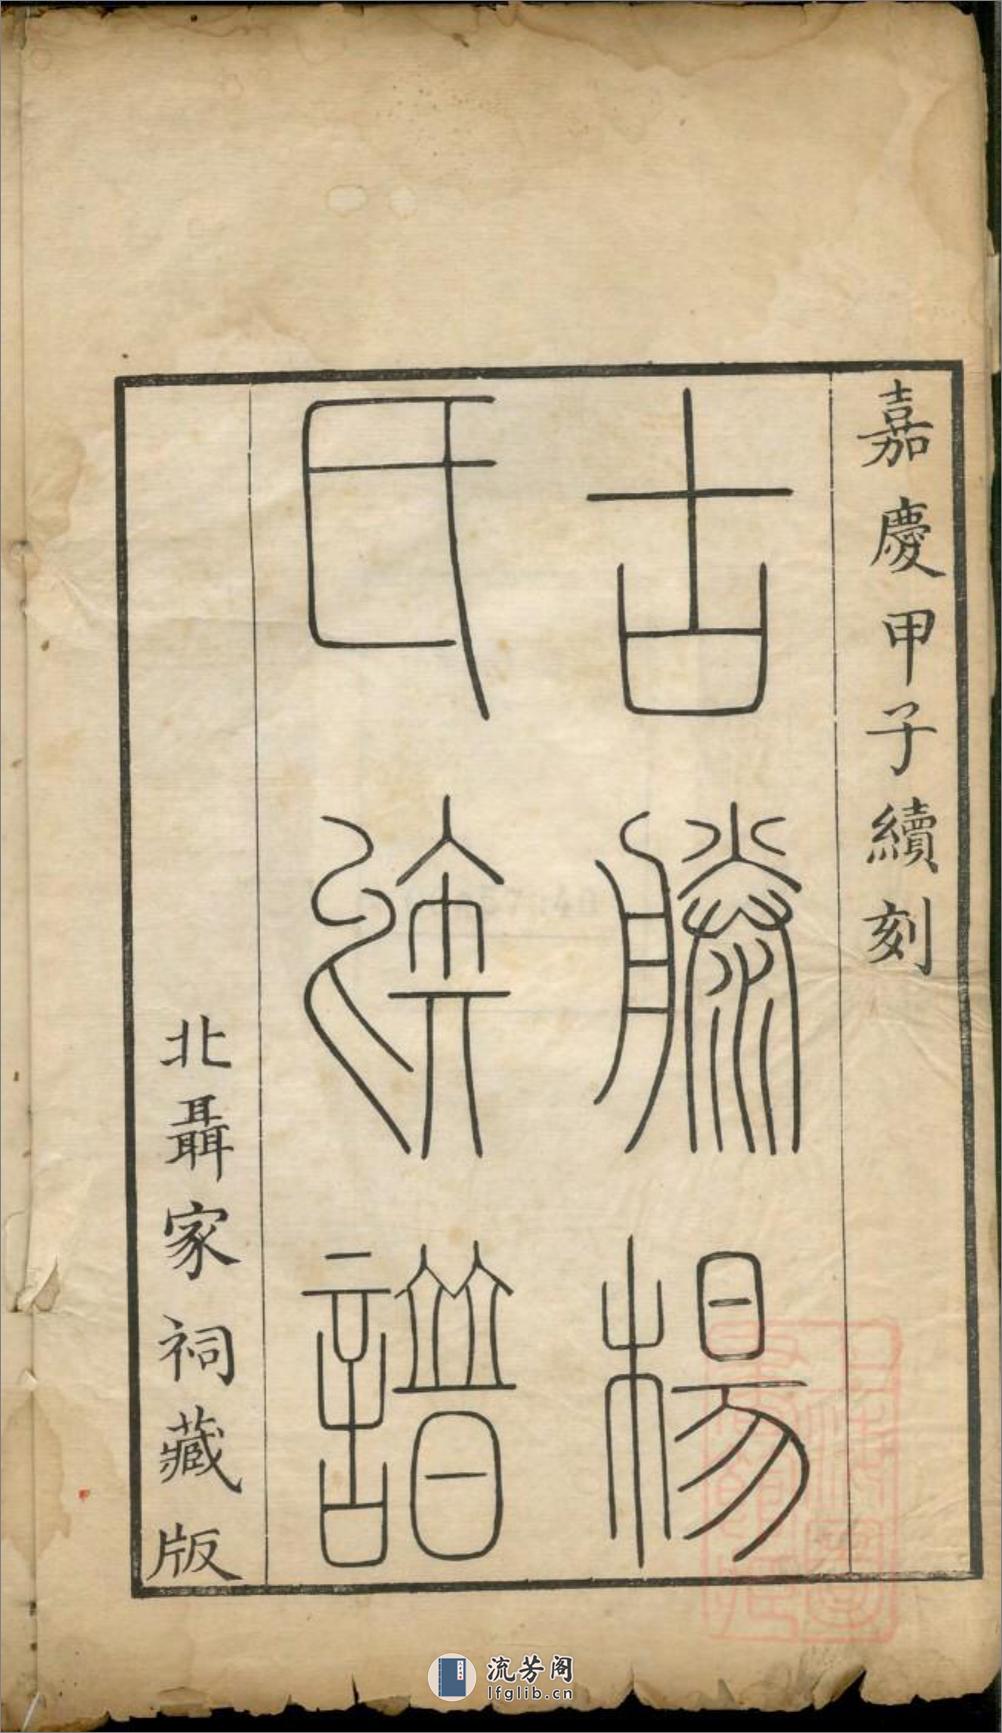 嘉慶甲子續刻
古滕楊
氏族譜
北聶家祠藏版
流芳阁
lfglib.cn